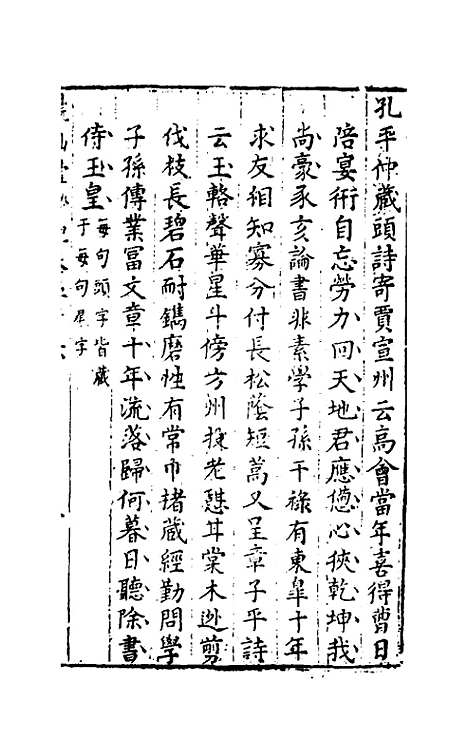 孔平仲藏頭詩寄賈宣州云高會當年喜得曹日
陪宴衎自忘勞力回天地君應憊心狹乾坤我
尚豪豕亥論書非素學子孫干祿有東皐十年
求友相知寡分付長松蔭短蒿又呈章子平詩
云玉輅聲華星斗傍方州投老憇甘棠木逊剪
伐枝長碧石耐鐫磨性有常巾堵藏經勤問學
子孫傳業冨文章十年流落歸何暮日聽除書
侍玉皇
每句頭字皆藏
于每句尾字